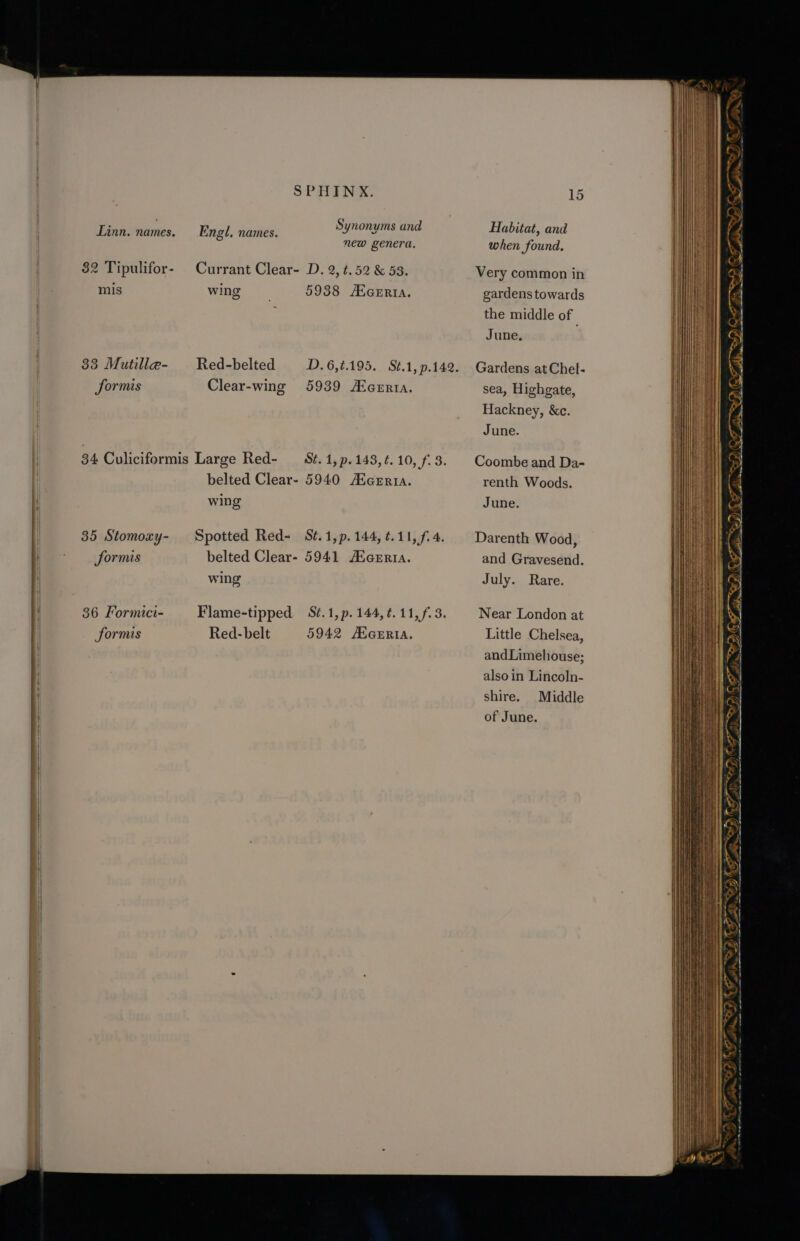 SPHINX. 15
Linn. names. Engl. names. Synonyms and new genera. Habitat, and when found.
32 Tipulifor- Currant Clear- D. 2, t. 52 & 53. Very common in
mis wing 5938 ÆGERIA. gardens towards
the middle of
June.
33 Mutillæ- Red-belted D. 6, t. 195. St. 1, p. 142. Gardens at Chel-
formis Clear-wing 5939 ÆGERIA. sea, Highgate,
Hackney, &c.
June.
34 Culiciformis Large Red- St. 1, p. 143, t. 10, f. 3. Coombe and Da-
belted Clear- 5940 ÆGERIA. renth Woods.
wing June.
35 Stomoxy- Spotted Red- St. 1, p. 144, t. 11, f. 4. Darenth Wood,
formis belted Clear- 5941 ÆGERIA. and Gravesend.
wing July. Rare.
36 Formici- Flame-tipped St. 1, p. 144, t. 11, f. 3. Near London at
formis Red-belt 5942 ÆGERIA. Little Chelsea,
and Limehouse;
also in Lincoln-
shire. Middle
of June.